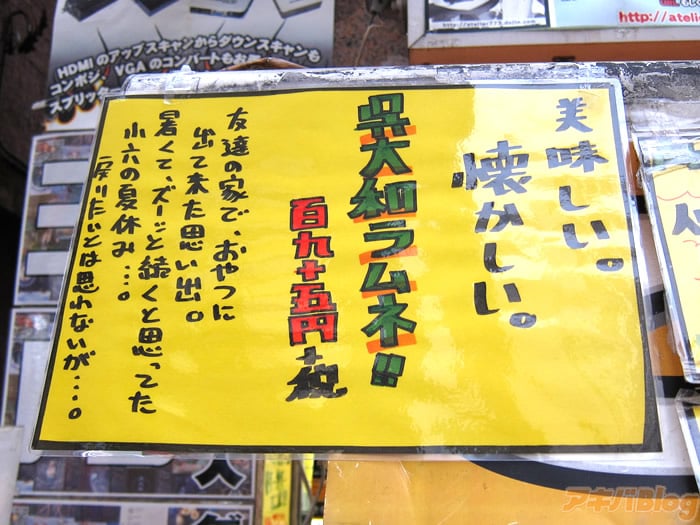 HDMIのアップスキャンからダウンスキャンも
コンポジ／VGAのコンバートもお
スプリッタ
http://atelier773.dojin.com
http://ateli
美味しい。
懐かしい。
呉大和ラムネ!!
百九十五円+税
友達の家で、おやつに
出て来た思い出。
暑くて、ズーッと続くと思ってた
小六の夏休み…。
戻りたいとは思わないが…。
アキバBlog